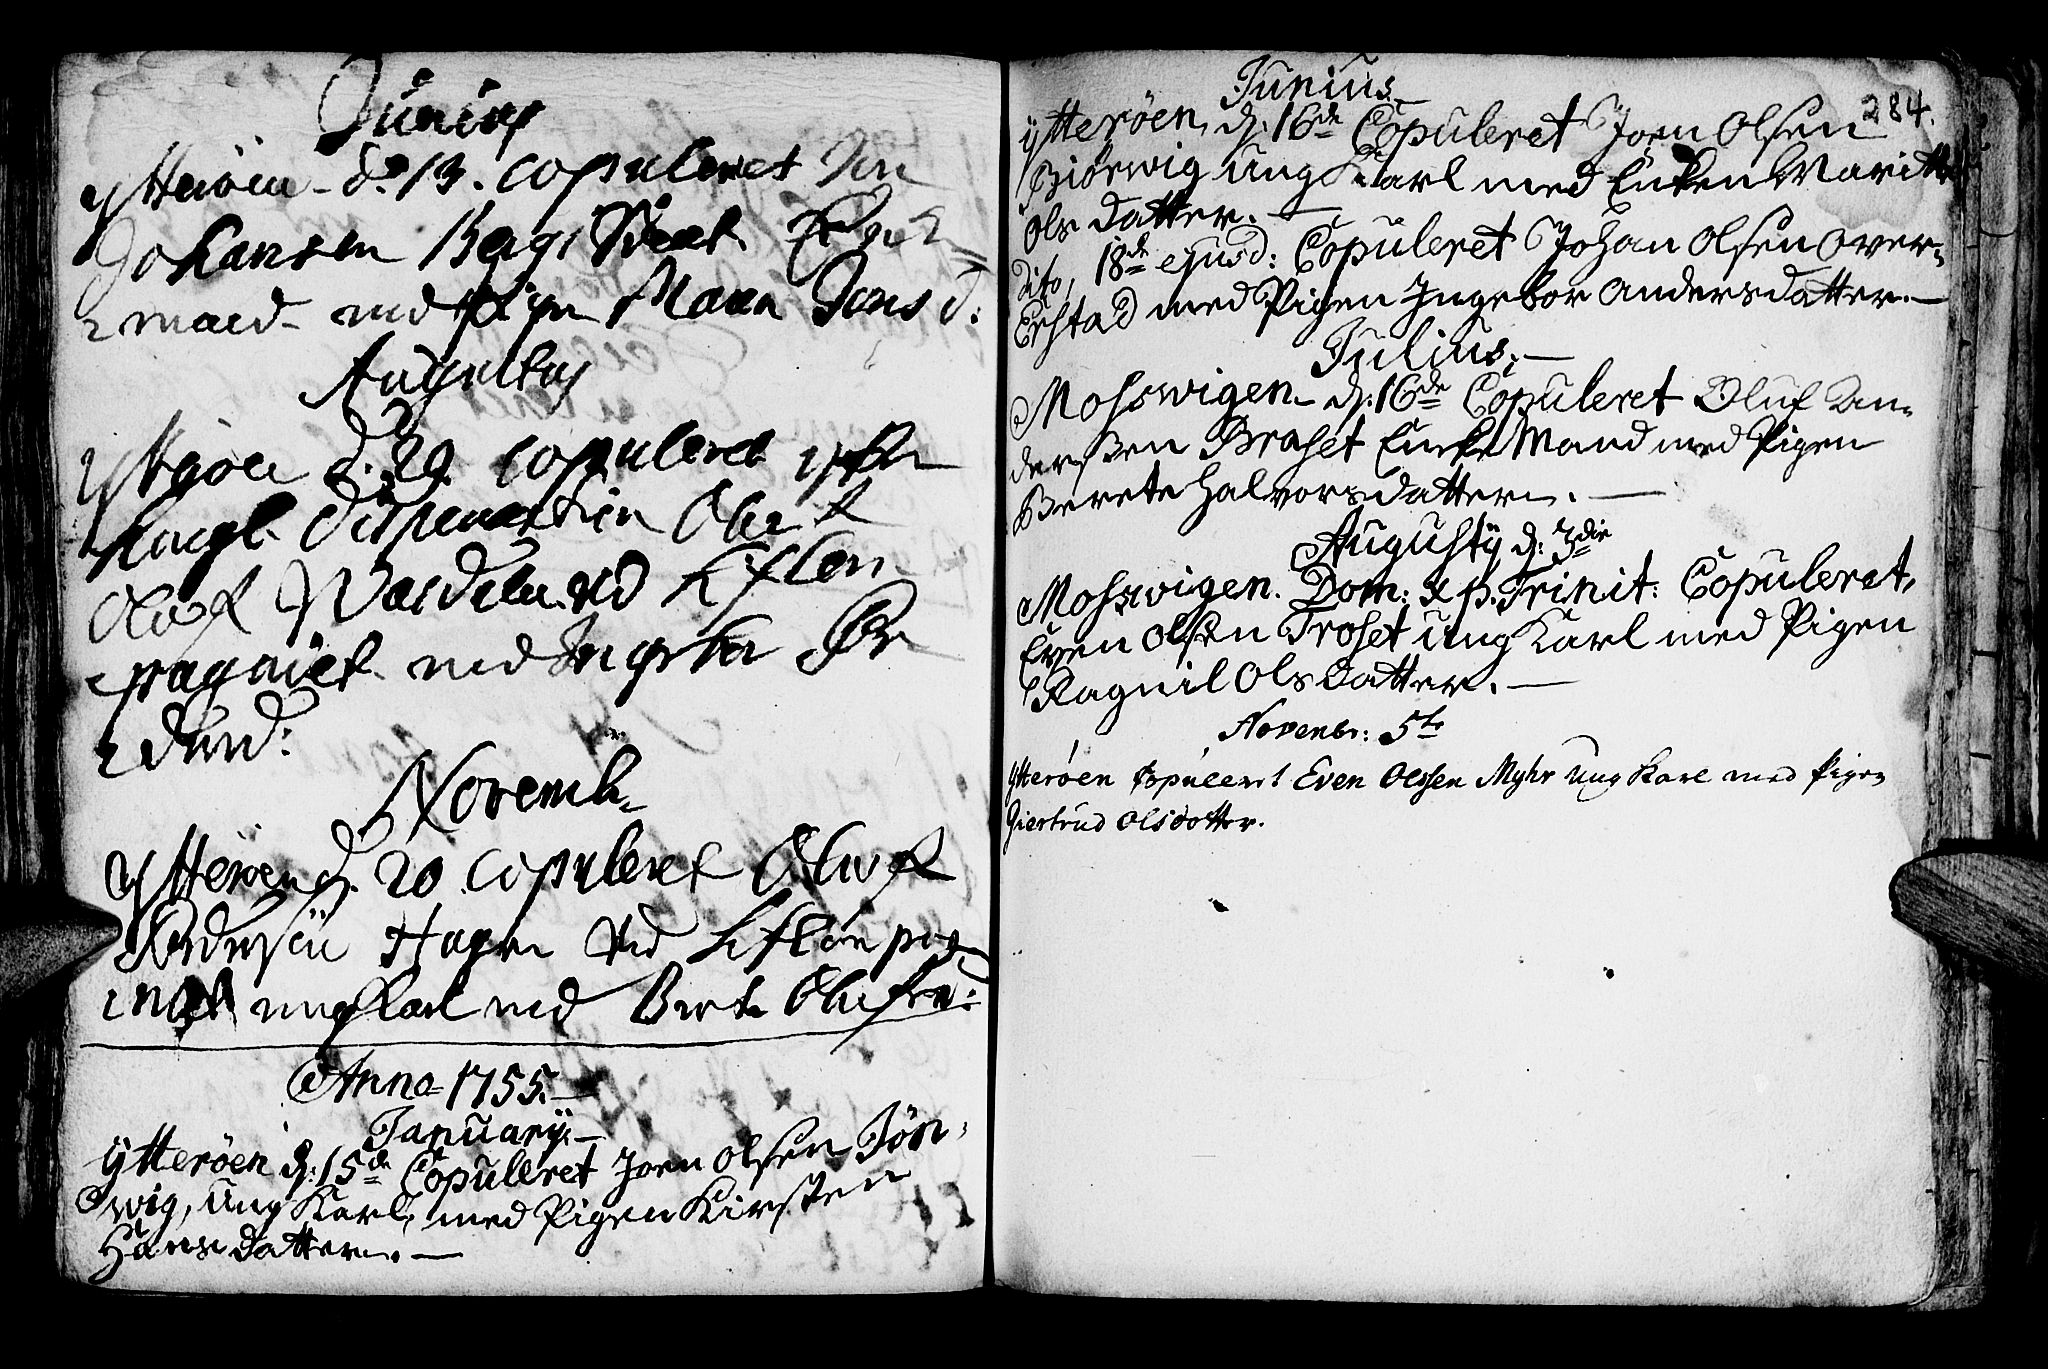 Junius
Ytteröen d. 13. copuleret Jon
Johansen Berg
mand med Pigen Maren Jons d:
Augustus
Ytteröen d. 29. copuleret efter
Kongl. Dispensation
Oluf med
med Ingebor
Novemb.
Ytteröen d. 20 copuleret Oluf
Andersen Hagen ved
ung Karl med Berte Olufsd:
Anno 1755.
January.
Ytterøen d: 15de Copuleret Joen Olsen Jön-
wig, Ung Karl, med Pigen Kirsten
Hans datter.
284.
Junius.
Ytterøen, d: 16de Copuleret Joen Olsen
Biörwig Ung Karl med Enken Maritte
Ols datter.
dito, 18de ejusd: Copuleret Johan Olsen Over-
Erstad med Pigen Ingebor Andersdatter.
Julius.
Moswigen d: 16de Copuleret Oluf An-
derssen Braset Enke Mand med Pigen
Berete Halvorsdatter.
Augusty d: 3die
Moswigen. Dom: X p. Trinit: Copuleret,
Even Olsen Troset Ung Karl med Pigen
Ragnil Ols datter.
Novenbr: 5te
Ytterøen Copuleret Even Olssen Myhr Ung Karl med Pigen
Giertrud Olsdotter.